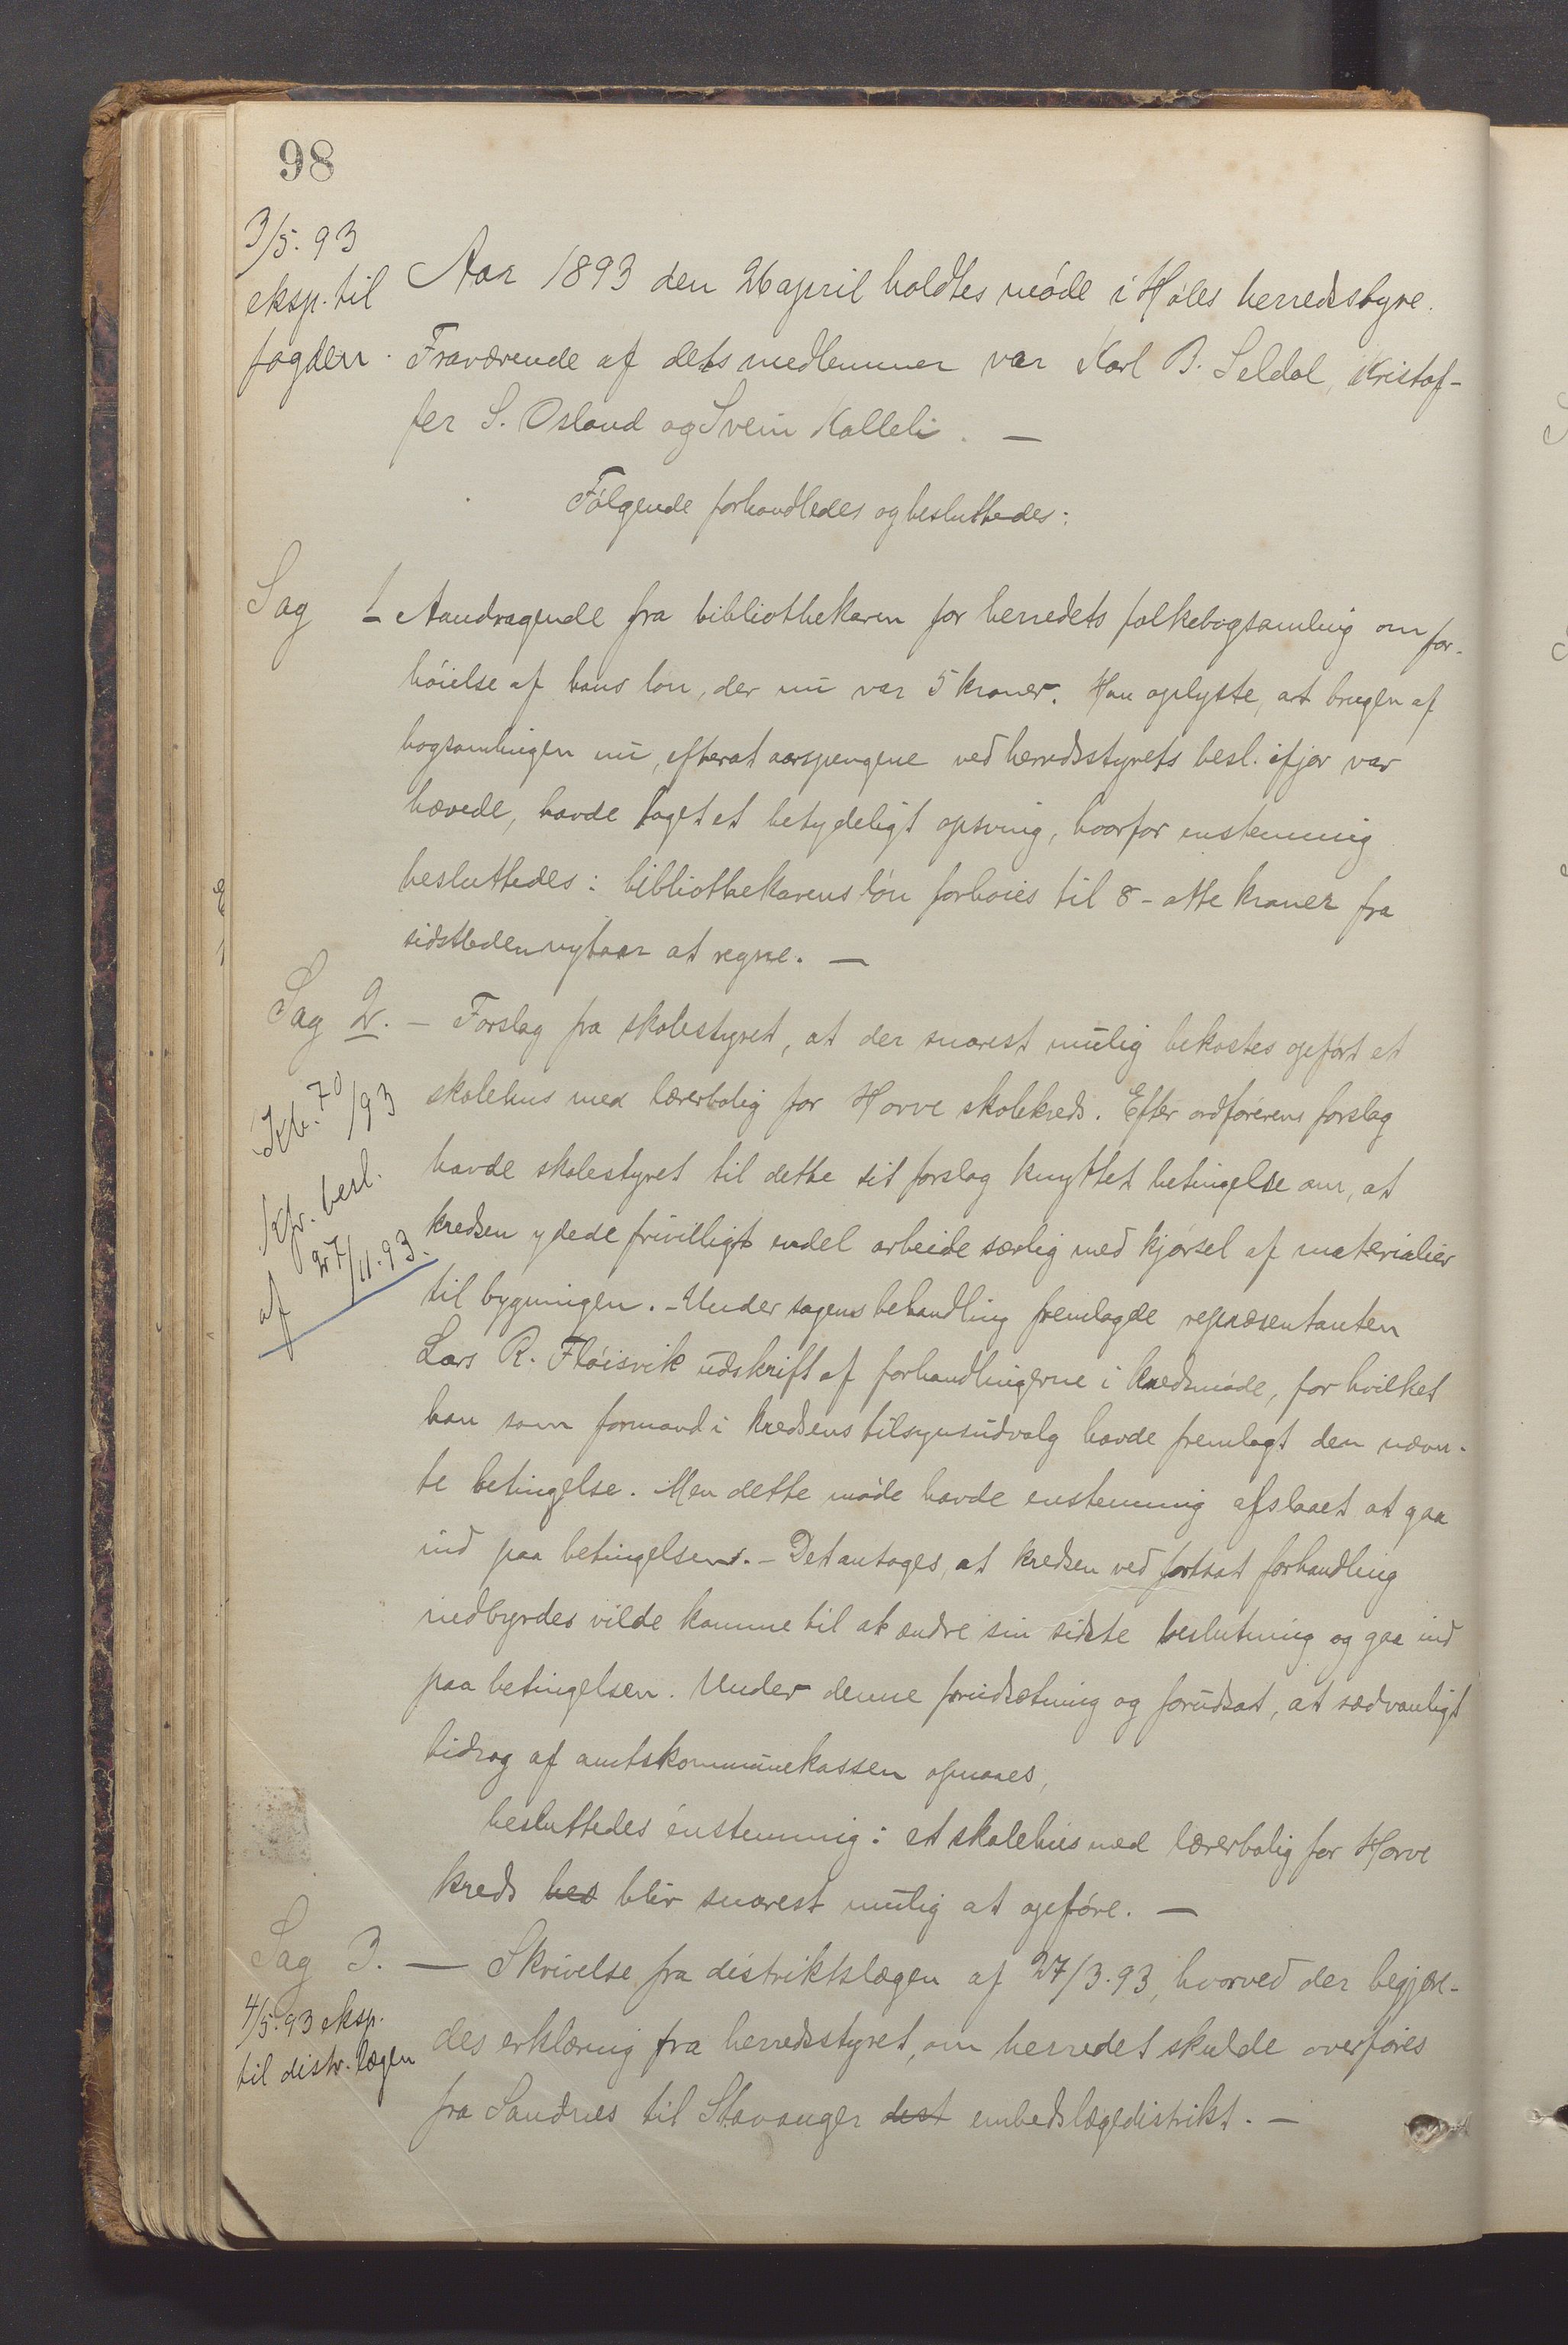 98
3/5. 93
eksp. til
fogden.
Aar 1893 den 26 april holdtes møde i Høles herredsstyre.
Fraværende af dets medlemmer var Karl B. Seldal, Kristof-
fer S. Osland og Svein Kalleli. —
Følgende forhandledes og besluttedes:
Sag 1 Aandragende fra bibliothekaren for herredets folkebogsamling om for-
høielse af hans løn, der nu var 5 kroner. Han oplyste, at brugen af
bogsamlingen nu, efterat aarspengene ved herredsstyrets besl. ifjor var
hævede, havde taget et betydeligt opsving, hvorfor enstemmig
besluttedes: bibliothekarens løn forhøies til 8 - otte kroner fra
sidstleden nytaar at regne. —
Sag 2. — Forslag fra skolestyret, at der snarest mulig bekostes opført et
skolehus med lærerbolig for Horve skolekreds. Efter ordførerens forslag
havde skolestyret til dette sit forslag knyttet betingelse om, at
kredsen ydede frivilligt endel arbeide særlig med kjørsel af materialier
til bygningen. - Under sagens behandling fremlagde repræsentanten
Lars R. Fløisvik udskrift af forhandlingerne i kredsmøde, for hvilket
han som formand i kredsens tilsynsudvalg havde fremlagt den nævn-
te betingelse. Men dette møde havde enstemmig afslaaet at gaa
ind paa betingelsen. - Det antoges, at kredsen ved fortsat forhandling
indbyrdes vilde komme til at ændre sin sidste beslutning og gaa ind
paa betingelsen. Under denne forudsætning og forudsat, at sædvanligt
bidrag af amtskommunekassen opnaaes,
besluttedes enstemmig: et skolehus med lærerbolig for Horve
kreds bes blir snarest mulig at opføre. —
70/93
kfr. besl.
af 27/11.93.
Sag 3. — Skrivelse fra distriktslægen af 27/3.93, hvorved der begjær-
des erklæring fra herredsstyret, om herredet skulde overføres
fra Sandnes til Stavanger dist embedslægedistrikt. —
4/5.93 eksp.
til distr. lægen